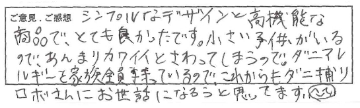 ご意見、ご感想 シンプルなデザインと高機能な
商品で、とても良かったです。小さい子供がいる
ので、あんまりカワイイとさわってしまうので。ダニアレ
ルギーを家族全員持っているので、これからもダニ捕り
ロボさんにお世話になろうと思ってます。